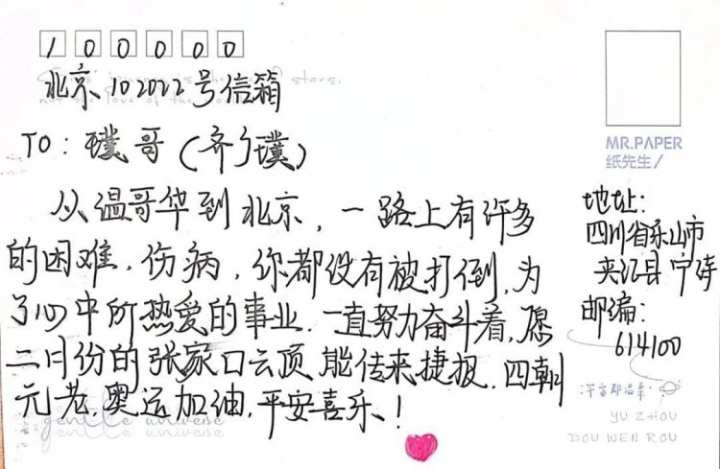 100000
北京102022号信箱
TO：璞哥（齐广璞）
从温哥华到北京，一路上有许多
的困难，伤病，你都没有被打倒，为
了心中所热爱的事业，一直努力奋斗着，愿
二月份的张家口云顶能传来捷报，四朝
元老，奥运加油，平安喜乐！
MR.PAPER
纸先生/
地址：
四川省乐山市
夹江县
邮编：
614100
YU ZHOU
DOU WEN ROU
gentle universe